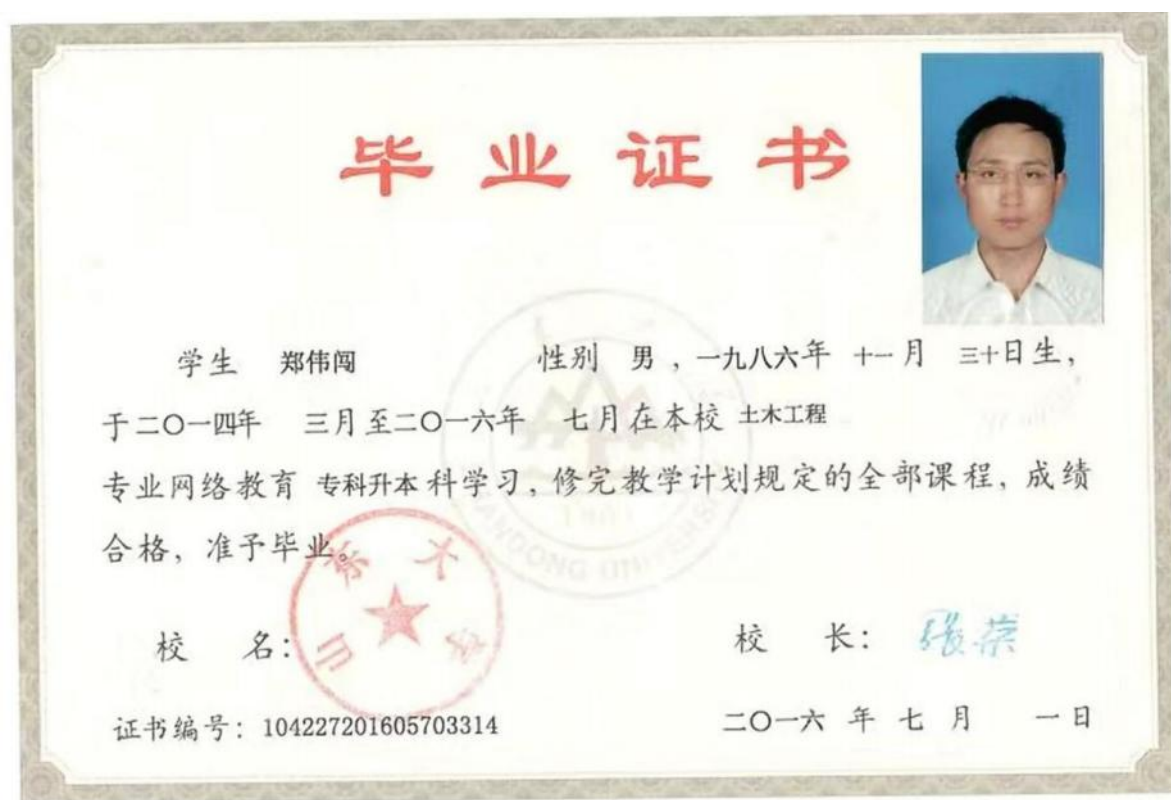 毕业证书
学生 郑伟闯 性别 男 , 一九八六年 十一月 三十日生,
于二〇一四年 三月至二〇一六年 七月在本校 土木工程
专业网络教育 专科升本科学习, 修完教学计划规定的全部课程, 成绩
合格, 准予毕业。
山东大学
校 名:
校 长:
证书编号: 104227201605703314
二〇一六 年 七 月 一日